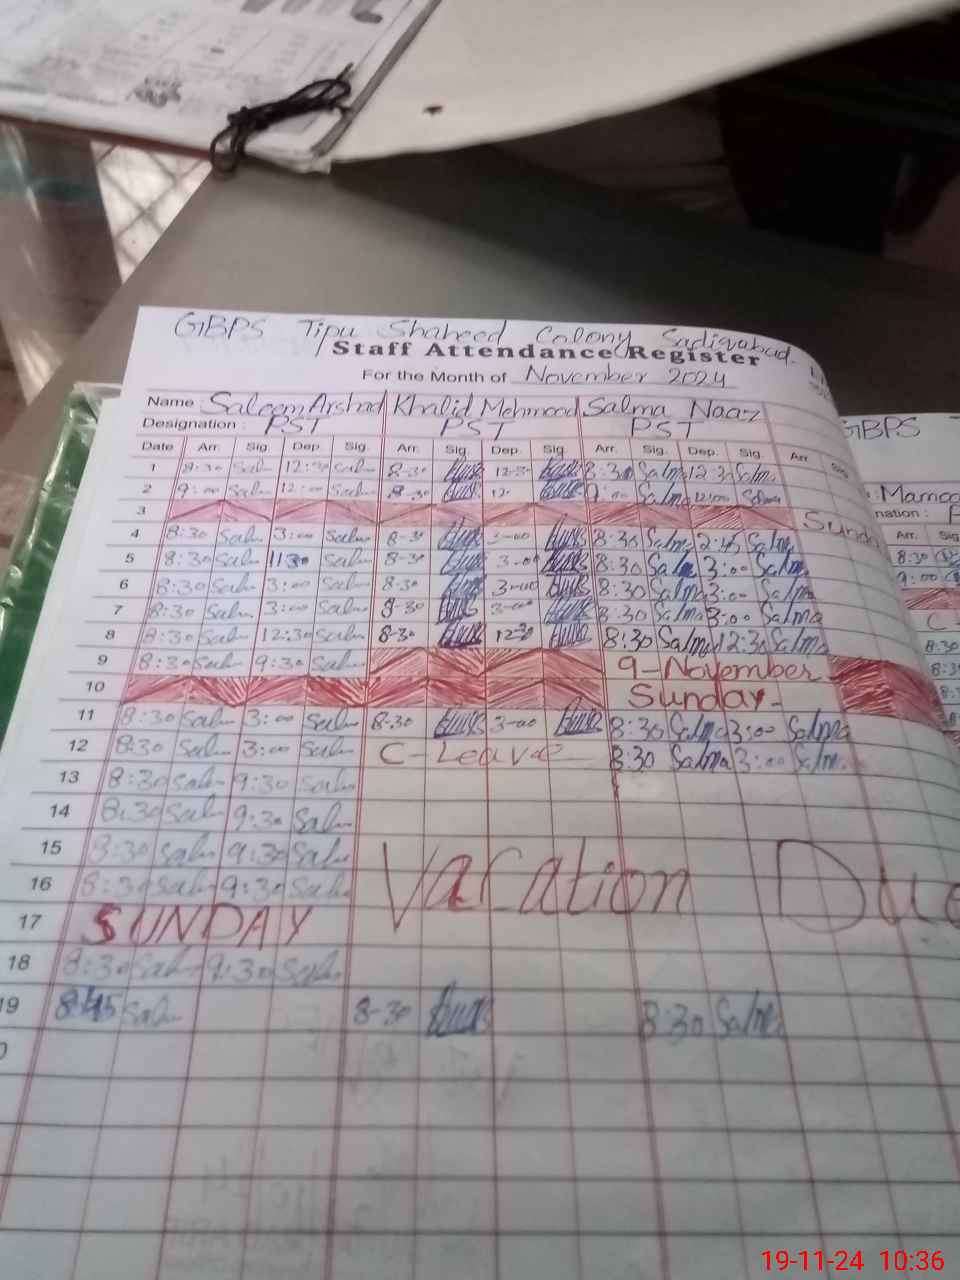 GBPS Tipu Shaheed Colony Sadiqabad.
Staff Attendance Register
For the Month of November 2024
Name Saleem Arshad Khalid Mehmood Salma Naaz
Designation : PST PST PST
Date Arr. Sig Dep. Sig. Arr. Sig. Dep. Sig. Arr. Sig. Dep. Sig. Arr. Sig.
1 8:30 Sal 12:30 Sal 8-30 12-30 8:30 Salma 12:30 Salma
2 9:00 Sal 12:00 Sal 8-30 12- 9:00 Salma 12:00 Salma
3 Sunday
4 8:30 Sal 3:00 Sal 8-30 3-00 8:30 Salma 2:45 Salma
5 8:30 Sal 11:30 Sal 8-30 3-00 8:30 Salma 3:00 Salma
6 8:30 Sal 3:00 Sal 8-30 3-00 8:30 Salma 3:00 Salma
7 8:30 Sal 3:00 Sal 8-30 3-00 8:30 Salma 3:00 Salma
8 8:30 Sal 12:30 Sal 8-30 12-30 8:30 Salma 12:30 Salma
9 8:30 Sal 9:30 Sal 9-November
10 Sunday
11 8:30 Sal 3:00 Sal 8-30 3-00 8:30 Salma 3:00 Salma
12 8:30 Sal 3:00 Sal C-Leave 8:30 Salma 3:00 Salma
13 8:30 Sal 9:30 Sal
14 8:30 Sal 9:30 Sal
15 8:30 Sal 9:30 Sal Vacation Due
16 8:30 Sal 9:30 Sal
17 SUNDAY
18 8:30 Sal 9:30 Sal
19 8:45 Sal 8-30 8:30 Salma
GBPS
Arr. Sig
8:30
9:00
C-
8:30
19-11-24 10:36